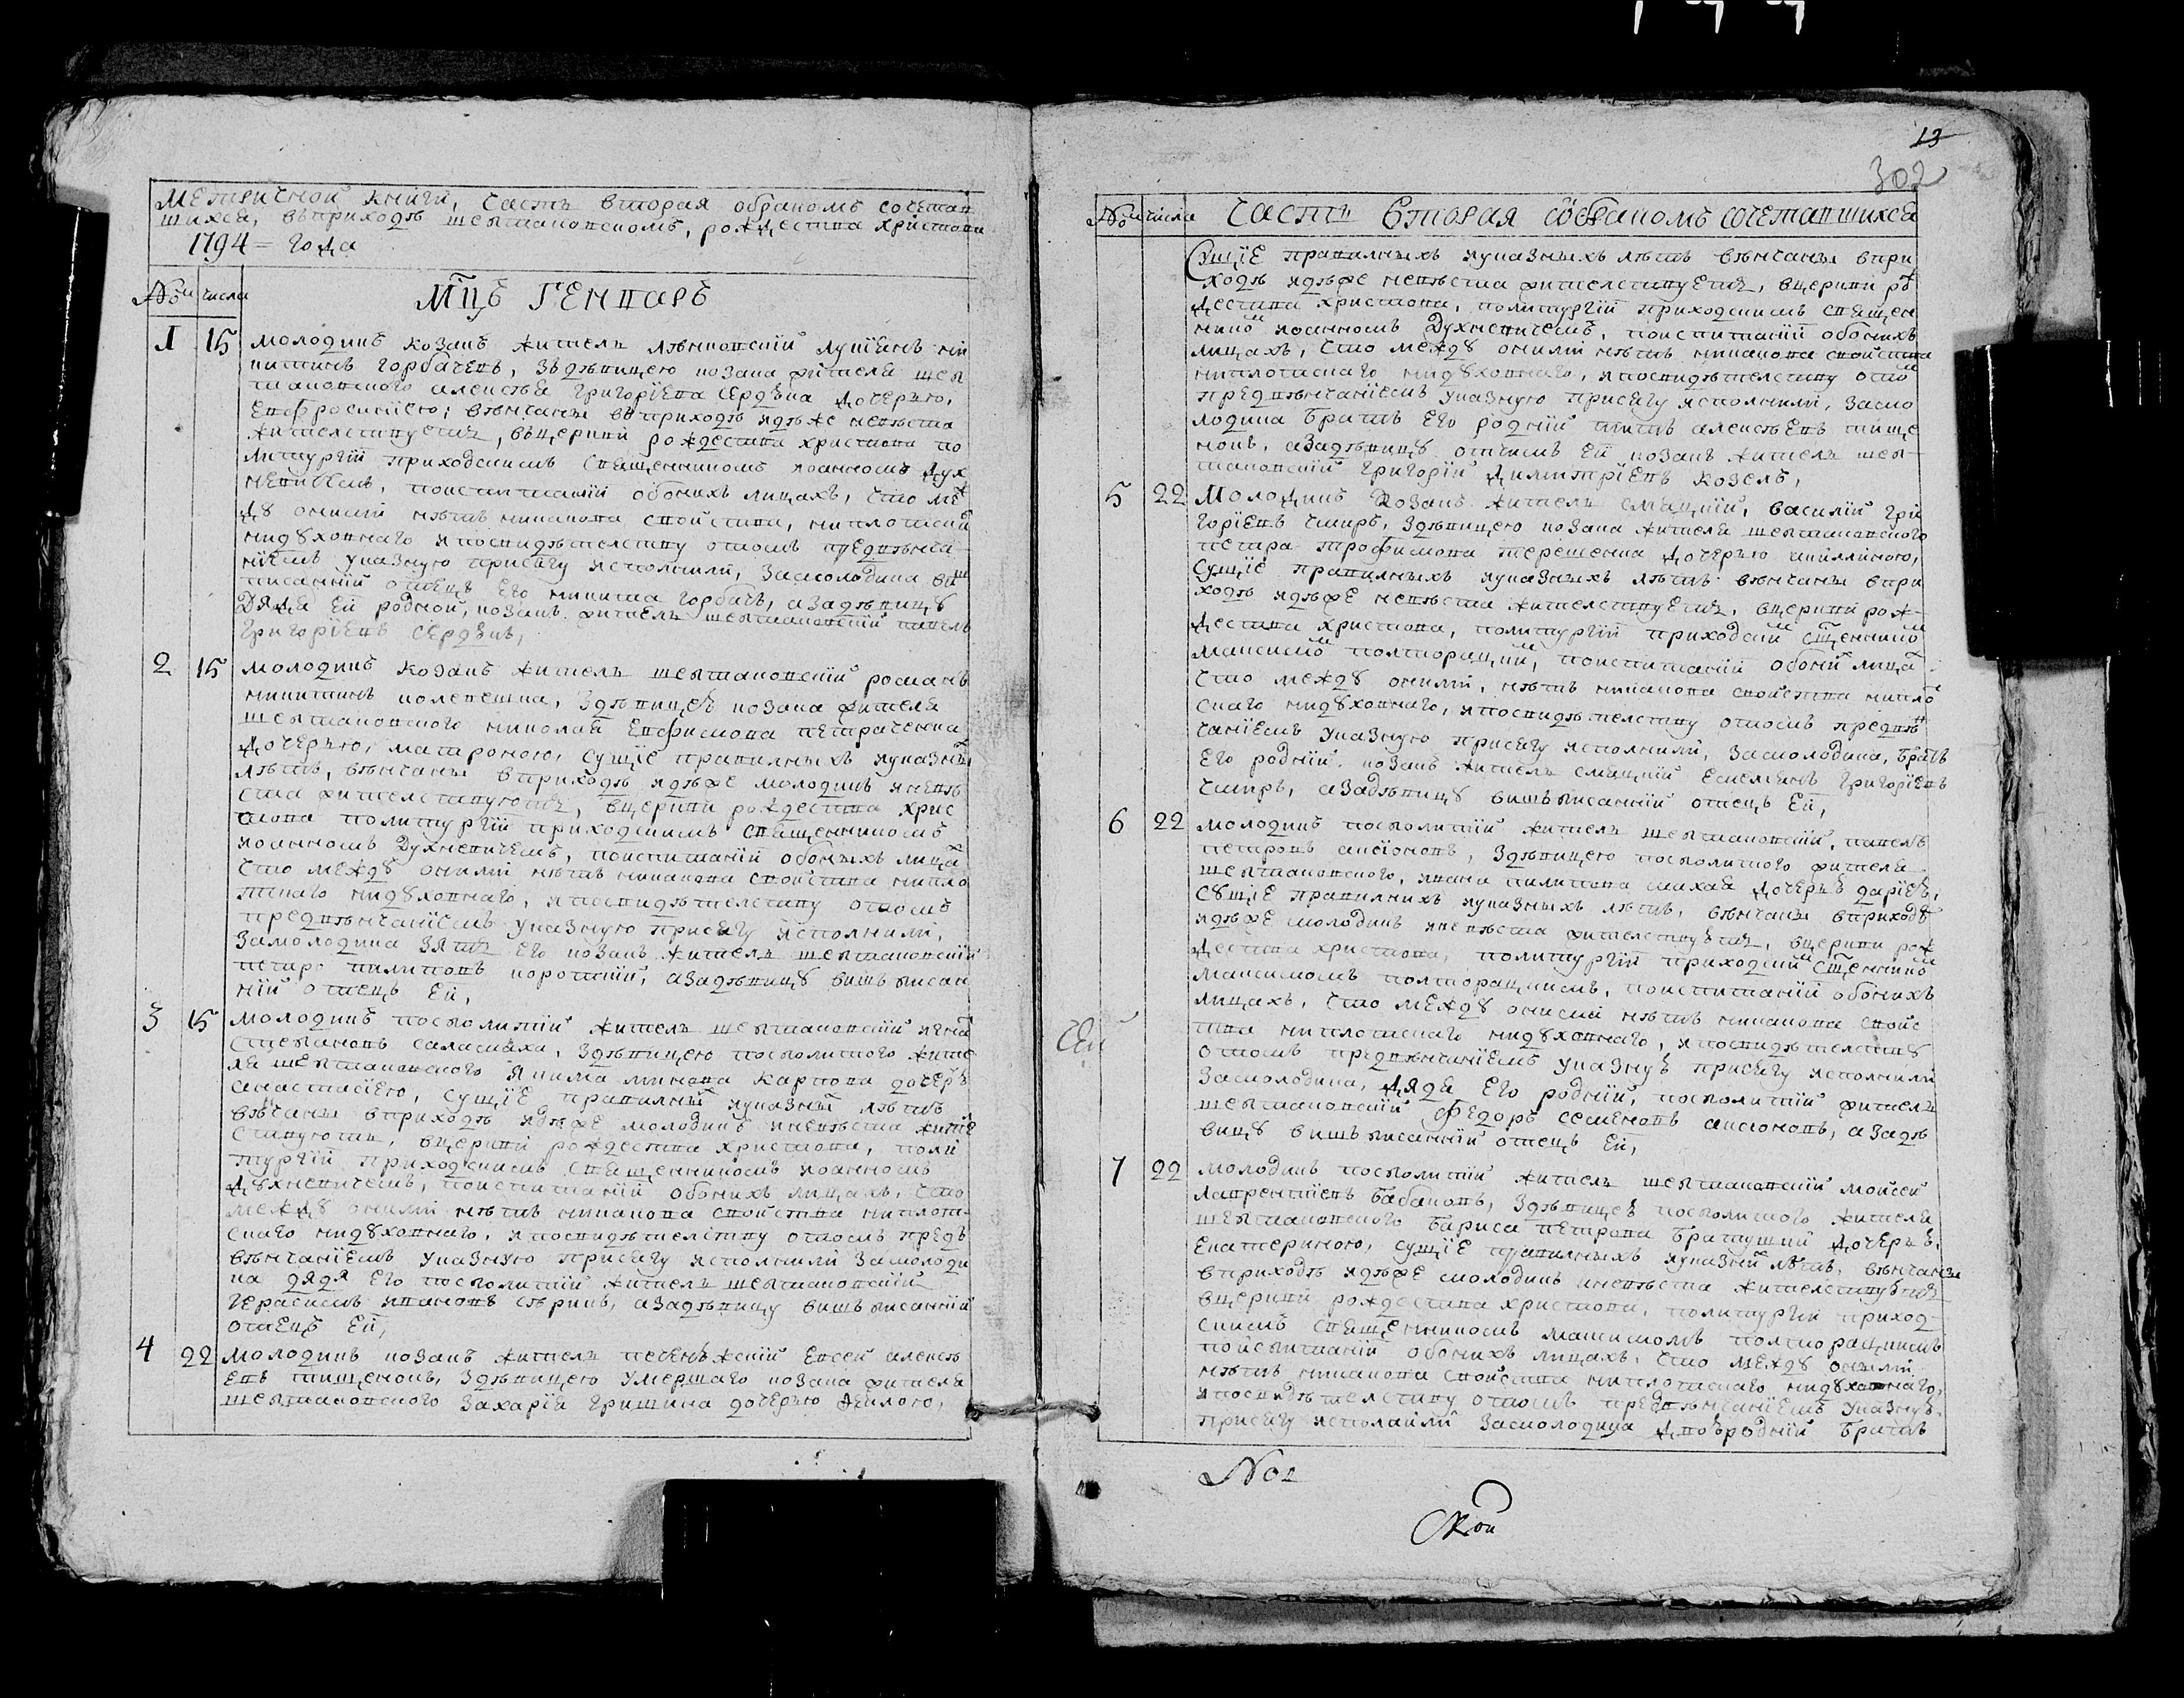 Метричной книги, часть вторая обраномъ сочетав
шихся, вприходѣ шептановскомъ, рождества христова
1794 = года
№ числа
Мц҃ъ Генваръ
1 15 молодикъ козакъ житель
горбачевъ, здѣвицею козака жителя шеп
тановского алексѣя григорїева сердѣка дочерью,
Евфросинїею; вѣнчаны вприходѣ идѣже невѣста
жителствуетъ, вьцеркви рождества христова по
литургїи приходскимъ священникомъ иоанномъ дух
невичемъ, повспитанїи обоихъ лицахъ, что меж
ду оними нѣтъ никакова свойства, ниплотска
нидуховнаго ипосвидѣтелству отомъ предвѣнча
нїемъ указную присягу исполнили, замолодика виш
писаннїй отецъ его никита горбачъ, азадѣвицу
Дядя ей родной, козакъ житель шептановскїй павелъ
григорїевъ сердѣкъ,
2 15 молодикъ козакъ житель шептановскїй романъ
никитинъ колепешка, здѣвицеѣ козака жителя
шептановского николая Евфимова петраченка
дочерью, матроною, сущїе правилныхъ иуказны
лѣтъ, вѣнчаны вприходѣ идѣже молодикъ иневѣ
ста жителствуютъ, вцеркви рождества хрис
това политургїи приходскимъ священникомъ
иоанномъ Духневичемъ, повспитанїи обоихъ лица
что между оними нѣтъ никакова свойства нипло
тскаго нидуховнаго, ипосвидѣтелству отомъ
предвѣнчанїемъ указную присягу исполнили,
замолодика зять его козакъ житель шептановскїй
петръ пилиповъ короткїй, азадѣвицу вишъписан
нїй отецъ ей,
3 15 молодикъ посполитїй житель шептановскїй игна
стефановъ саласмаха, здѣвицею посполитого жите
ля шептановского якима минова карпова дочерѣ
анастасїею, сущїе правилны иуказны лѣтъ
вѣчаны вприходѣ идѣже молодикъ иневѣста жител
ствуютъ, вцеркви рождества христова, поли
тургїи приходскимъ священникомъ иоанномъ
духневичемъ, повспитанїи обоихъ лицахъ, что
между оними нѣтъ никакова свойства ниплот
скаго нидуховнаго, ипосвидѣтелству отомъ предъ
вѣнчанїемъ указную присягу исполнили замолоди
ка дядя его посполитїй житель шептановскїй
герасимъ ивановъ сѣрикъ, азадѣвицу вишъписаннїй
отецъ ей,
4 22 молодикъ козакъ житель печенѣжскїй Евсей алексѣ
евъ тищенокъ, здѣвицею умершаго козака жителя
шептановского захарїя гришина дочерью акилою,
13
302
№ числа Часть Вторая обраномъ сочетавшихся
Сущїе правилныхъ иуказныхъ лѣтъ вѣнчаны впри
ходѣ идѣже невѣста жителствуетъ, вцеркви рож
дества христова, политургїи приходскимъ священ
нико иоанномъ Духневичемъ, повспитанїи обоихъ
лицахъ, что между оними нѣтъ никакова свойства
ниплотскаго нидуховнаго, ипосвидѣтелству ото
предвѣнчанїемъ указную присягу исполнили, замо
лодика братъ его роднїй титъ алексѣевъ тище
нокъ, азадѣвицу отчимъ ей козакъ житель шеп-
тановскїй григорїй димитрїевъ козелъ,
5 22 Молодикъ козакъ житель смяцкїй, василїй гри
горїевъ чмиръ, здѣвицею козака жителя шептановского
петра трофимова терешенка дочерью
сущїе правилныхъ иуказныхъ лѣтъ вѣнчаны впри
ходѣ идѣже невѣста жителствуетъ, вцеркви рож-
дества христова, политургїи приходски сщ҃еннико
максимо полторацки, повспитанїи обои лица
что между оними, нѣтъ никакова свойства нипло
скаго нидуховнаго, ипосвидѣтелству отомъ предвѣ
чанїемъ указную присягу исполнили, замолодика, братъ
его роднїй козакъ житель смяцкїй Емелянъ григорїевъ
чмиръ, азадѣвицу вишъписаннїй отецъ ей,
6 22 молодикъ посполитїй житель шептановскїй, павелъ
петровъ аксїоновъ, здѣвицею посполитого жителя
шептановского, ивана пилипова михая дочерѣ дарїеѣ,
сущїе правилнихъ иуказныхъ лѣтъ, вѣнчаны вприходѣ
идѣже молодикъ иневѣста жителствуютъ, вцеркви рож
дества христова, политургїи приходски сщ҃еннико
максимомъ полторацкимъ, повспитанїи обоихъ
лицахъ, что между оними нѣтъ никакова свойс
тва ниплотскаго нидуховнаго, ипосвидѣтелству
отомъ предвѣнчанїемъ указнуѣ присягу исполнили
замолодика, дядя его роднїй, посполитїй житель
шептановскїй федоръ семеновъ аксюновъ, азадѣ
вицу вишъписаннїй отецъ ей,
7 22 молодикъ посполитїй житель шептановскїй мойсей
лаврентїевъ бабановъ, здѣвицеѣ посполитого жителя
шептановского бариса петрова братущий дочерѣѣ,
екатериною, сущїе правилныхъ иуказни лѣтъ, вѣнчаны
вприходѣ идѣже молодикъ иневѣста жителствуютъ
вцеркви рождества христова, политургїи приход-
скимъ священникомъ максимомъ полторацкимъ
повспитанїи обоихъ лицахъ, что между оными
нѣтъ никакова свойства ниплотскаго нидуховнаго,
ипосвидѣтелству отомъ предвѣнчанїемъ указнуѣ
присягу исполнили замолодика двоѣроднїй братъ